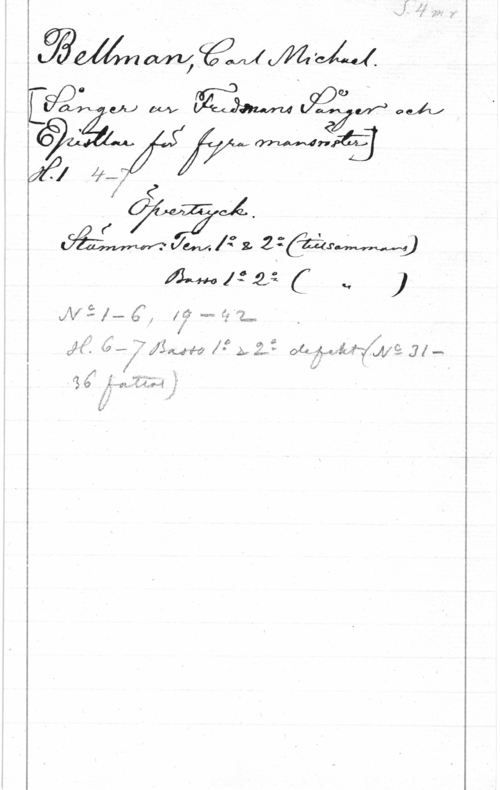 S. 4 m r
Bellman, Carl Michael.
[Sånger ur Fredmans Sånger och
Epistlar för fyra mansröster]
H. 1 4-7
Öfvertryck.
Stämmor: Ten. 1º & 2º (tillsammans)
Basso 1º 2º ( " )
Nº 1-6, 19-42
H. 6-7 Basso 1º & 2º defekt (Nº 31-
36 fattas)